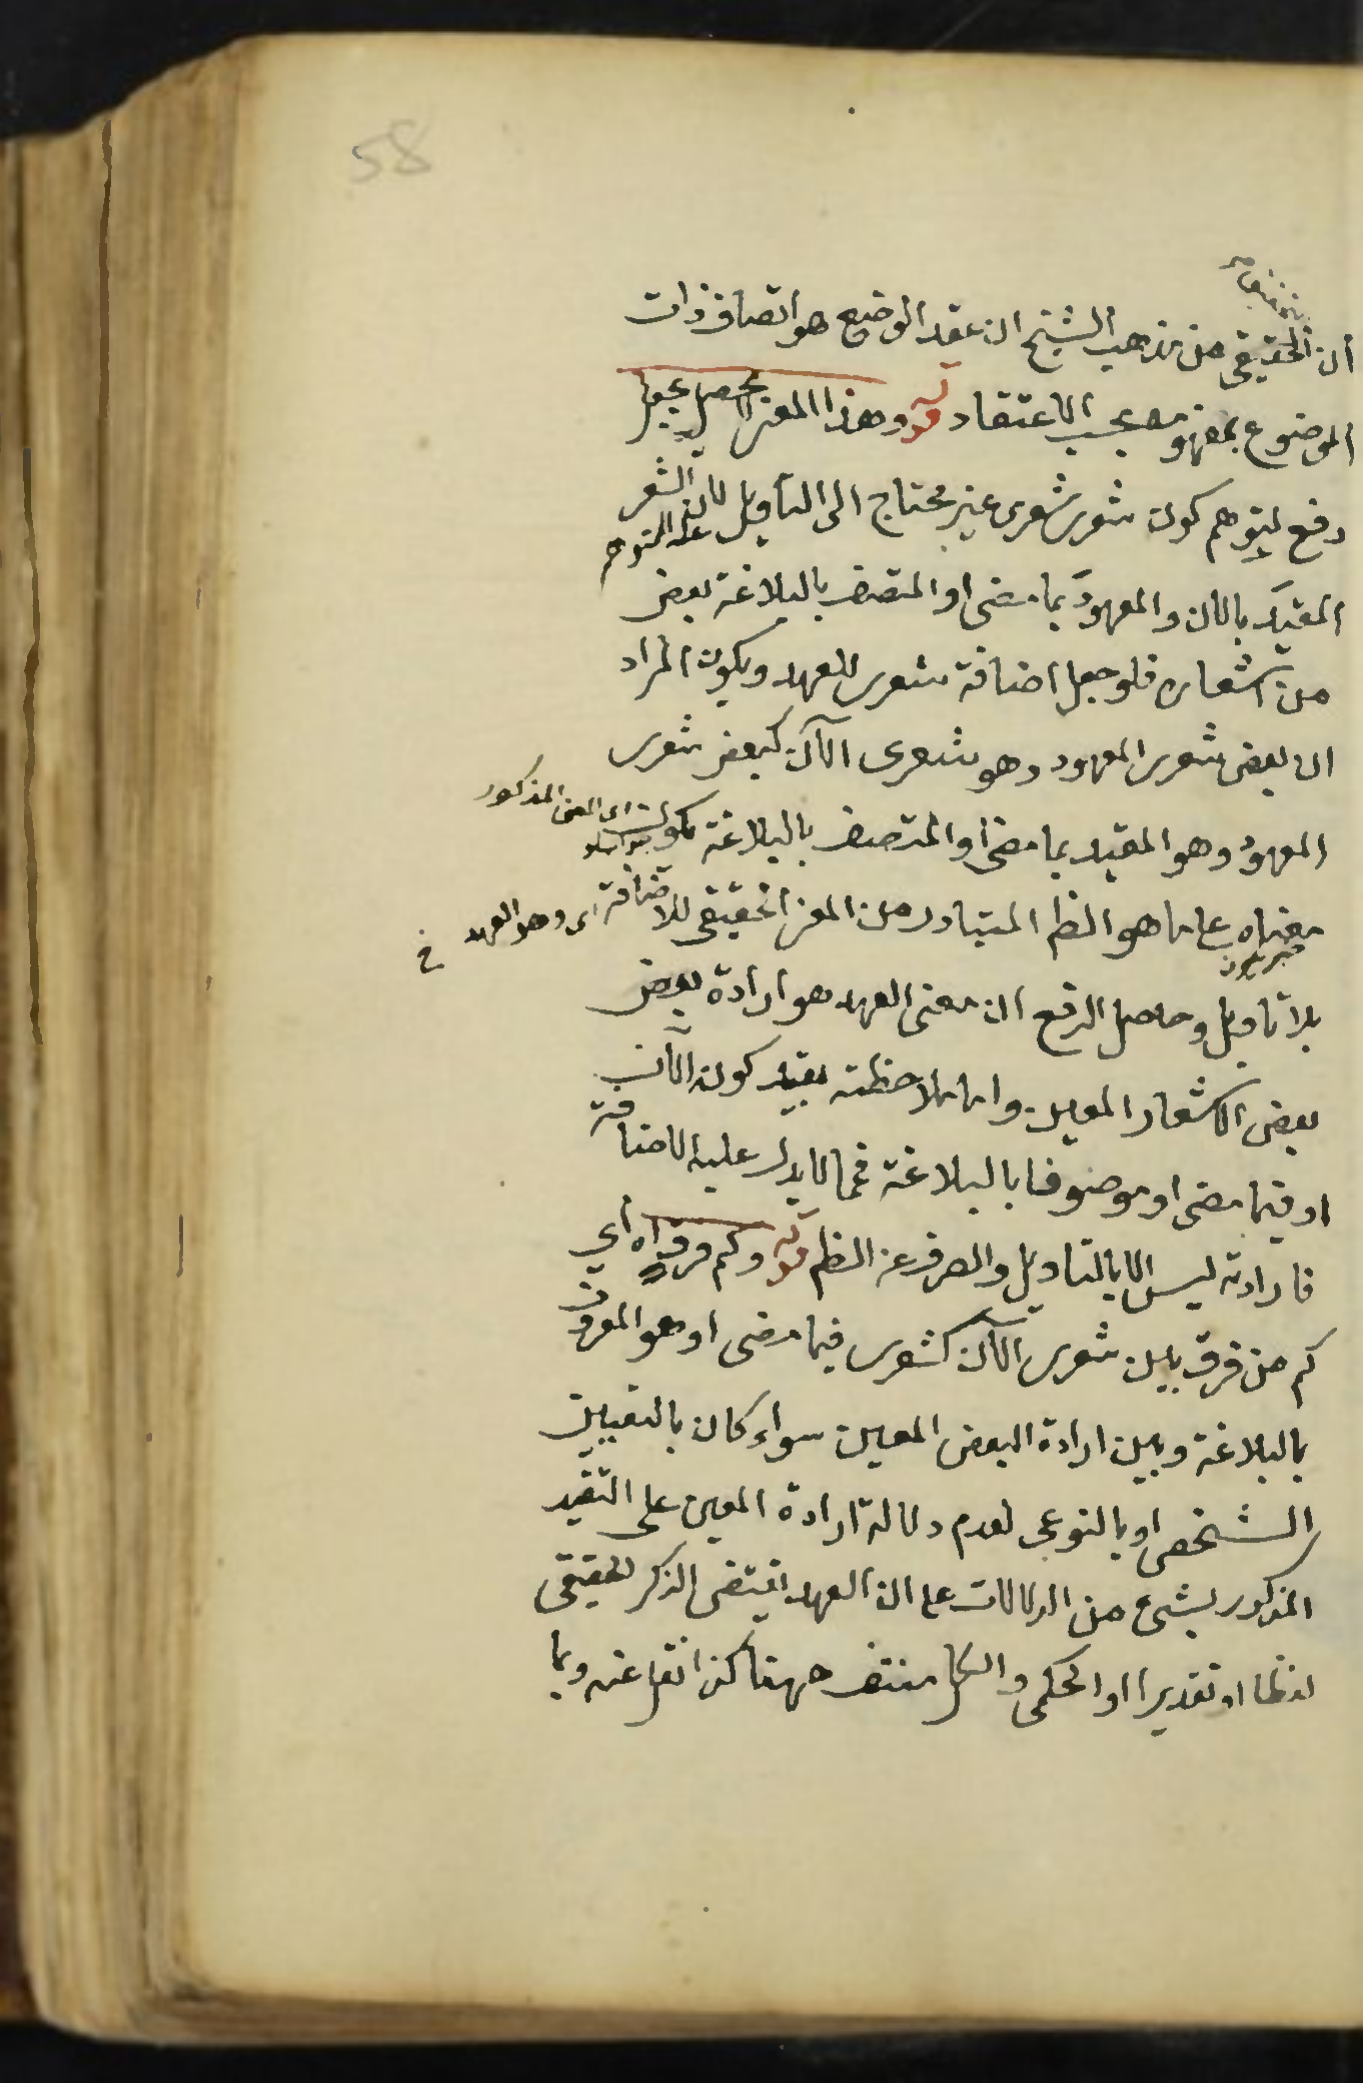 58
ان الحقيقى من مذهب الشيخ ان عقد الوضع هو اتصاف ذات
الموضوع بمفهومه بحسب الاعتقاد قوله وهذا المعنى يحصل بجعل
دفع ليتوهم كون شعرى شعرى غير محتاج الى التأويل لان الشعر
علة التوهم
المقيد بالان والمعهود بما مضى او المتصف بالبلاغة بعض
من اشعاره فلو جعل اضافة شعرى للعهد ويكون المراد
ان بعض شعرى المعهود وهو شعرى الآن كبعض شعرى
المعهود وهو المقيد بما مضى او المتصف بالبلاغة يكون
اى المعنى المذكور
معناه على ما هو الظ المتبادر من المعنى الحقيقى للاضافة اى وهو العهد
خبر يكون
بلا تاويل وحاصل الدفع ان معنى العهد هو ارادة بعض
بعض الاشعار المعين واما ملاحظته بقيد كونه الآن
او فيما مضى او موصوفا بالبلاغة فمما لا يدل عليه الاضافة
فارادته ليس الا بالتاويل والصرف عن الظم قوله وكم فرق اه اى
كم من فرق بين شعرى الآن كشعرى فيما مضى او هو المعروف
بالبلاغة وبين ارادة البعض المعين سواء كان بالتعيين
الشخصى او بالنوعى لعدم دلالة ارادة المعين على التقيد
المذكور بشئ من الدلالات على ان العهد يقتضى الذكر الحقيقى
لفظا او تقديرا او الحكمى والكل منتف ههنا كذا نقل عنه وبما